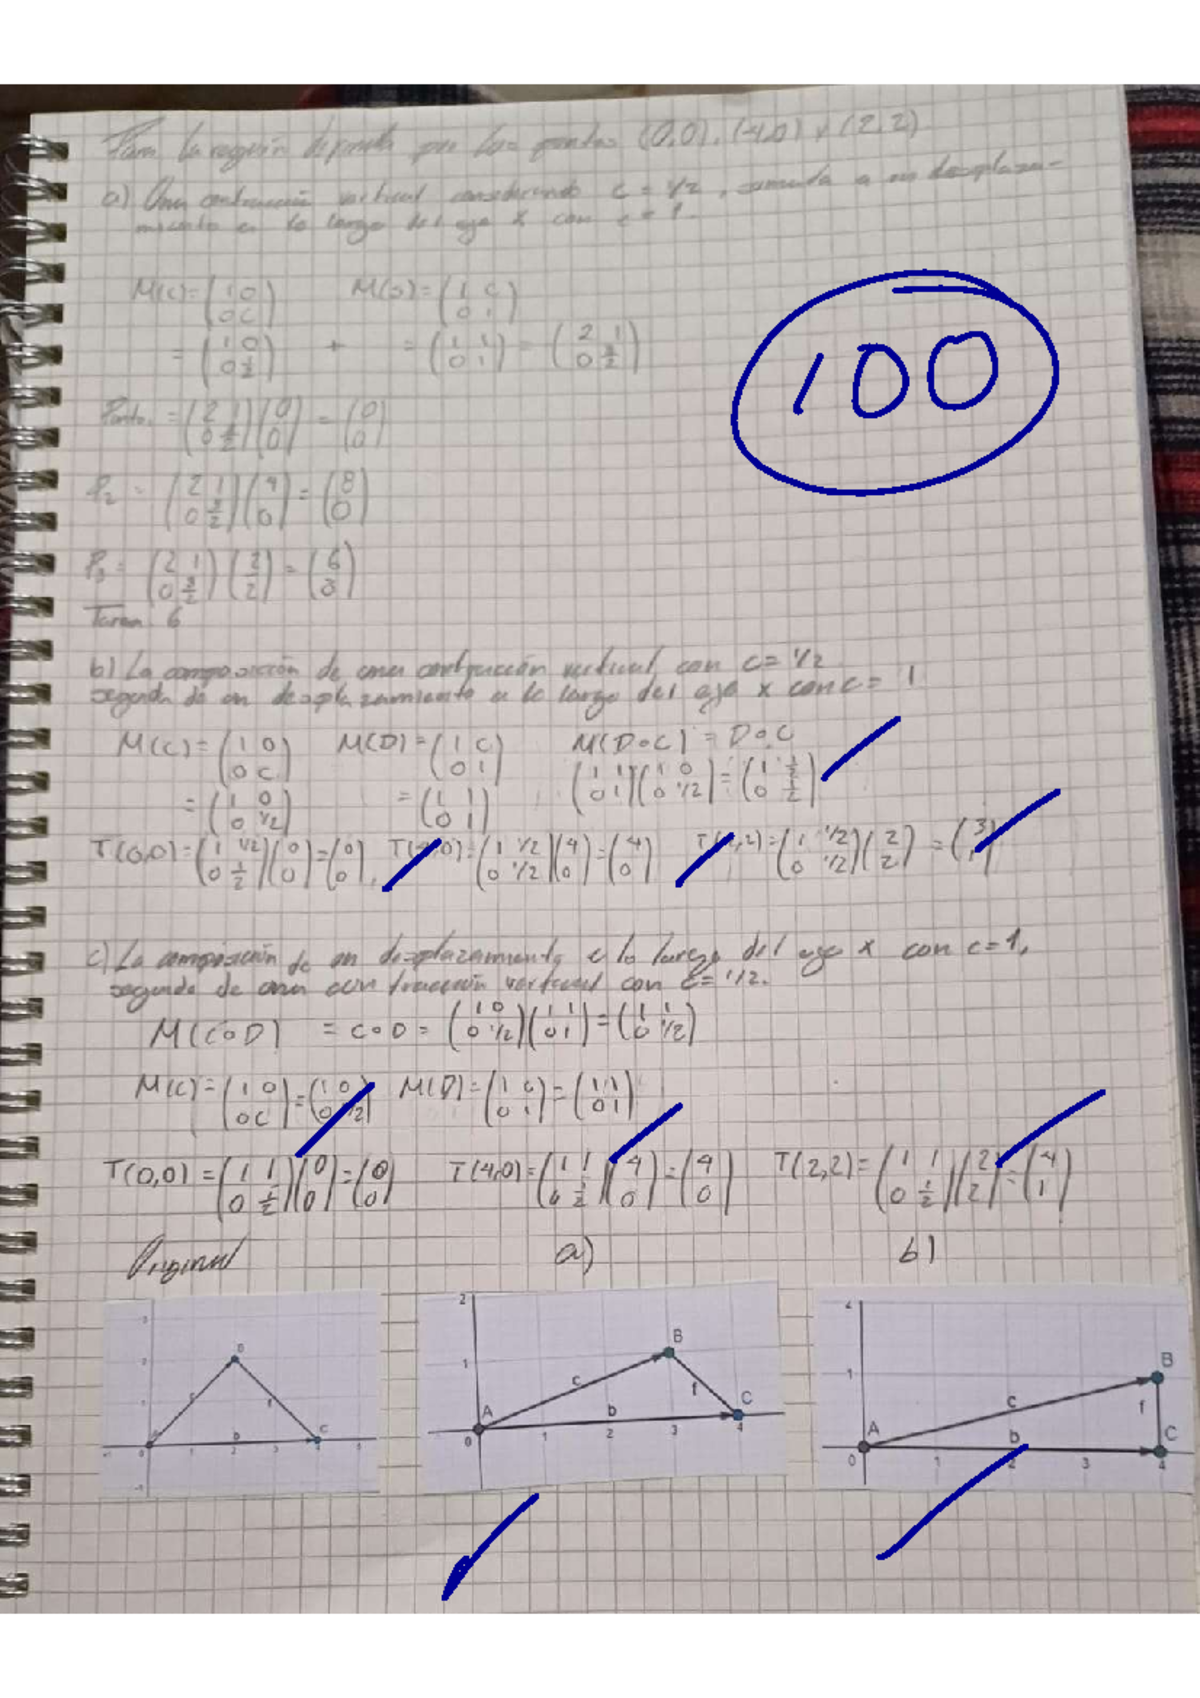 Para la región depnida por los puntos (0,0), (4,0) y (2,2)
a) Una contracción vertical considerando c = 1/2, sumada a un desplaza-
miento a lo largo del eje x con c = 1.
M(c) = (1 0 / 0 c) M(D) = (1 c / 0 1)
= (1 0 / 0 1/2) + = (1 1 / 0 1) = (2 1 / 0 3/2)
100
Punto, = (2 1 / 0 3/2)(0 / 0) = (0 / 0)
P2 = (2 1 / 0 3/2)(4 / 0) = (8 / 0)
P3 = (2 1 / 0 3/2)(2 / 2) = (6 / 3)
Tarea 6
b) La composición de una contracción vertical con c = 1/2
seguida de un desplazamiento a lo largo del eje x con c = 1
M(C) = (1 0 / 0 c) M(D) = (1 c / 0 1) M(D∘C) = D∘C
= (1 0 / 0 1/2) = (1 1 / 0 1) (1 1 / 0 1)(1 0 / 0 1/2) = (1 1/2 / 0 1/2)
T(0,0) = (1 1/2 / 0 1/2)(0 / 0) = (0 / 0), T(4,0) = (1 1/2 / 0 1/2)(4 / 0) = (4 / 0) T(2,2) = (1 1/2 / 0 1/2)(2 / 2) = (3 / 1)
c) La composición de un desplazamiento a lo largo del eje x con c = 1,
seguida de una contracción vertical con c = 1/2.
M(C∘D) = C∘D = (1 0 / 0 1/2)(1 1 / 0 1) = (1 1 / 0 1/2)
M(C) = (1 0 / 0 C) = (1 0 / 0 1/2) M(D) = (1 c / 0 1) = (1 1 / 0 1)
T(0,0) = (1 1 / 0 1/2)(0 / 0) = (0 / 0) T(4,0) = (1 1 / 0 1/2)(4 / 0) = (4 / 0) T(2,2) = (1 1 / 0 1/2)(2 / 2) = (4 / 1)
Original a) b)
2 1 0 1 2 3 4 A B C c b f
1 0 1 2 3 4 A B C c b f